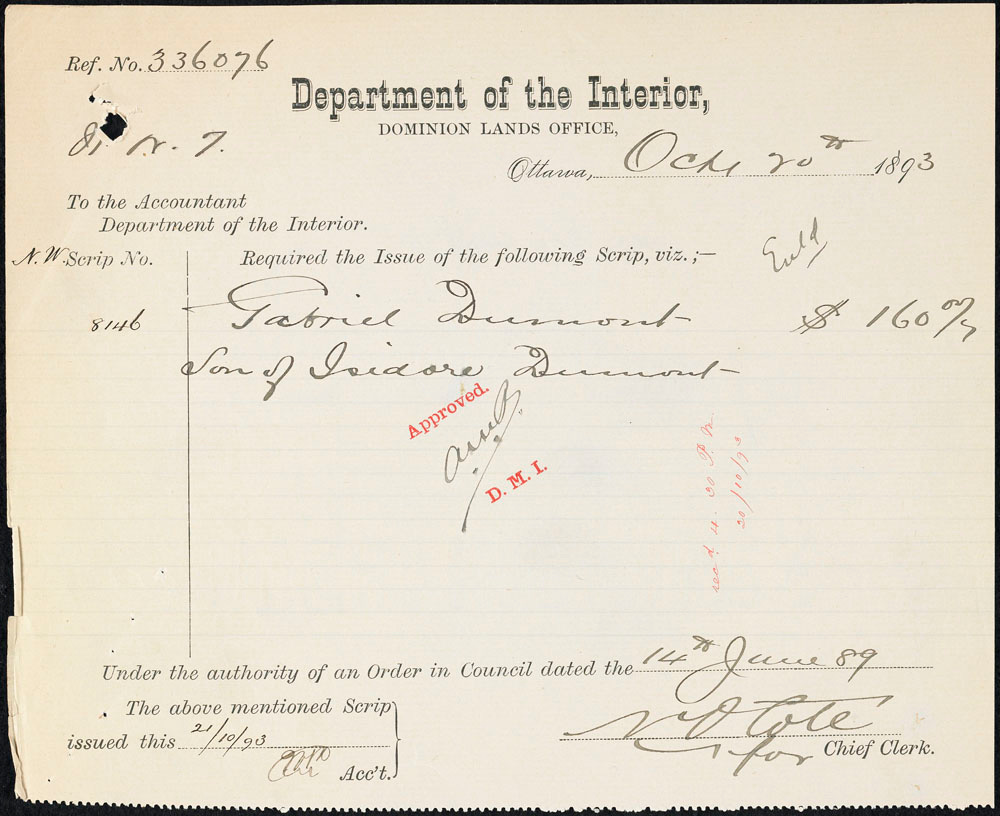 Ref. No. 336076
Department of the Interior,
DOMINION LANDS OFFICE,
N. W. T.
Ottawa, Oct 20th 1893
To the Accountant
Department of the Interior.
N. W. Scrip No.
Required the Issue of the following Scrip, viz.;—
8146
Gabriel Dumont
$ 160 00/
Son of Isidore Dumont
Approved.
D. M. I.
rec'd 4. 30 P. M
20/10/93
Under the authority of an Order in Council dated the 14th June 89
The above mentioned Scrip
issued this 21/10/93
Acc't.
N O Cote
for Chief Clerk.